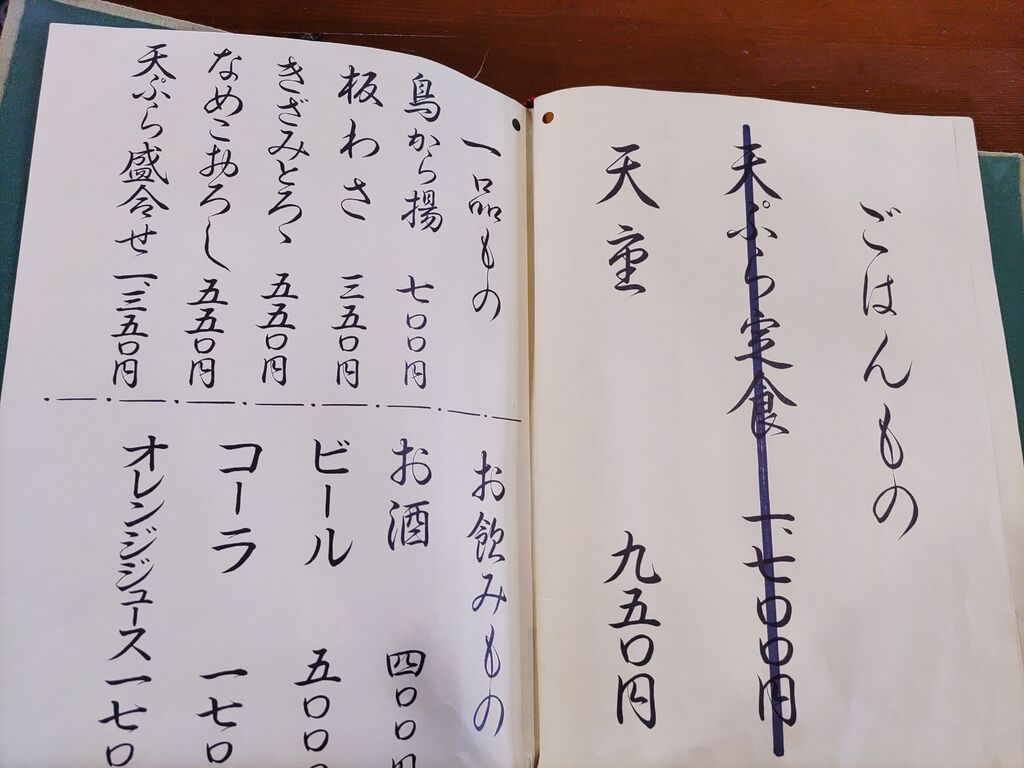 ごはんもの
天ぷら定食 一、七〇〇円
天重 九五〇円
一品もの
鳥から揚 七〇〇円
板わさ 三五〇円
きざみとろゝ 五五〇円
なめこおろし 五五〇円
天ぷら盛合せ 一、三五〇円
お飲みもの
お酒 四〇〇円
ビール 五〇〇
コーラ 一七〇
オレンジジュース 一七〇